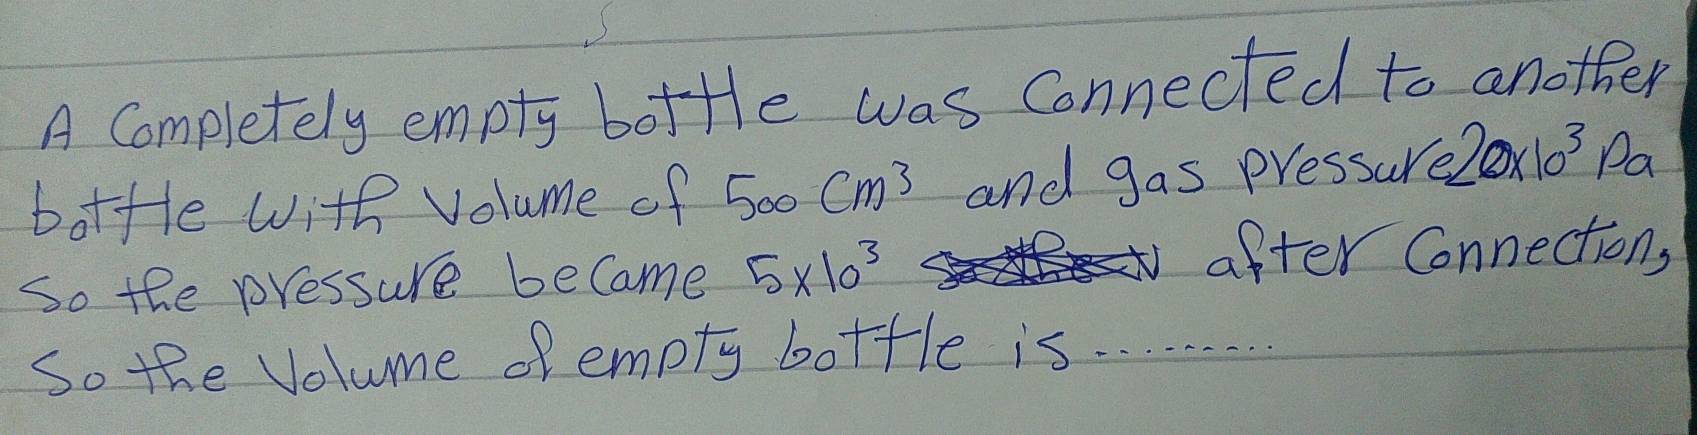 A Completely empty bottle was Connected to another
bottle with Volume of 500 Cm³ and gas pressure 20x10³ Pa
So the pressure became 5x10³ after Connection,
So the Volume of empty bottle is..........